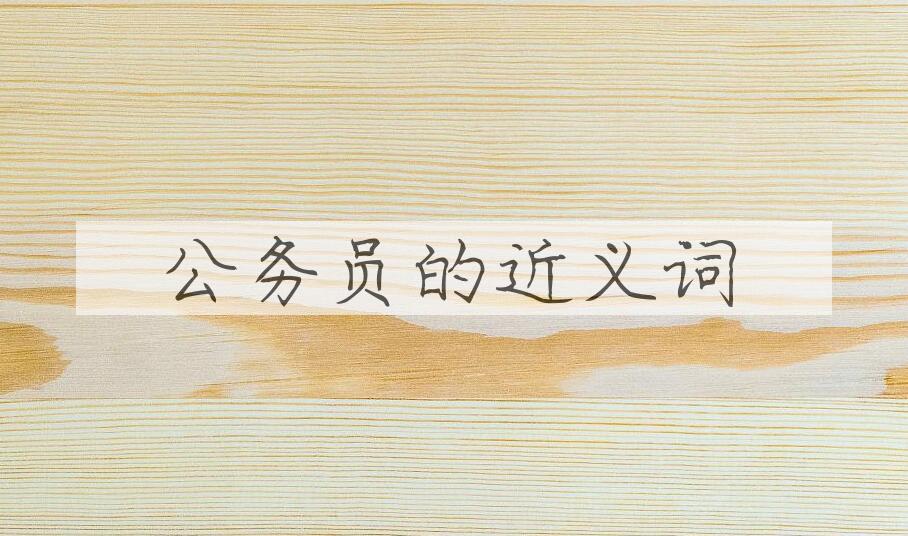 公务员的近义词